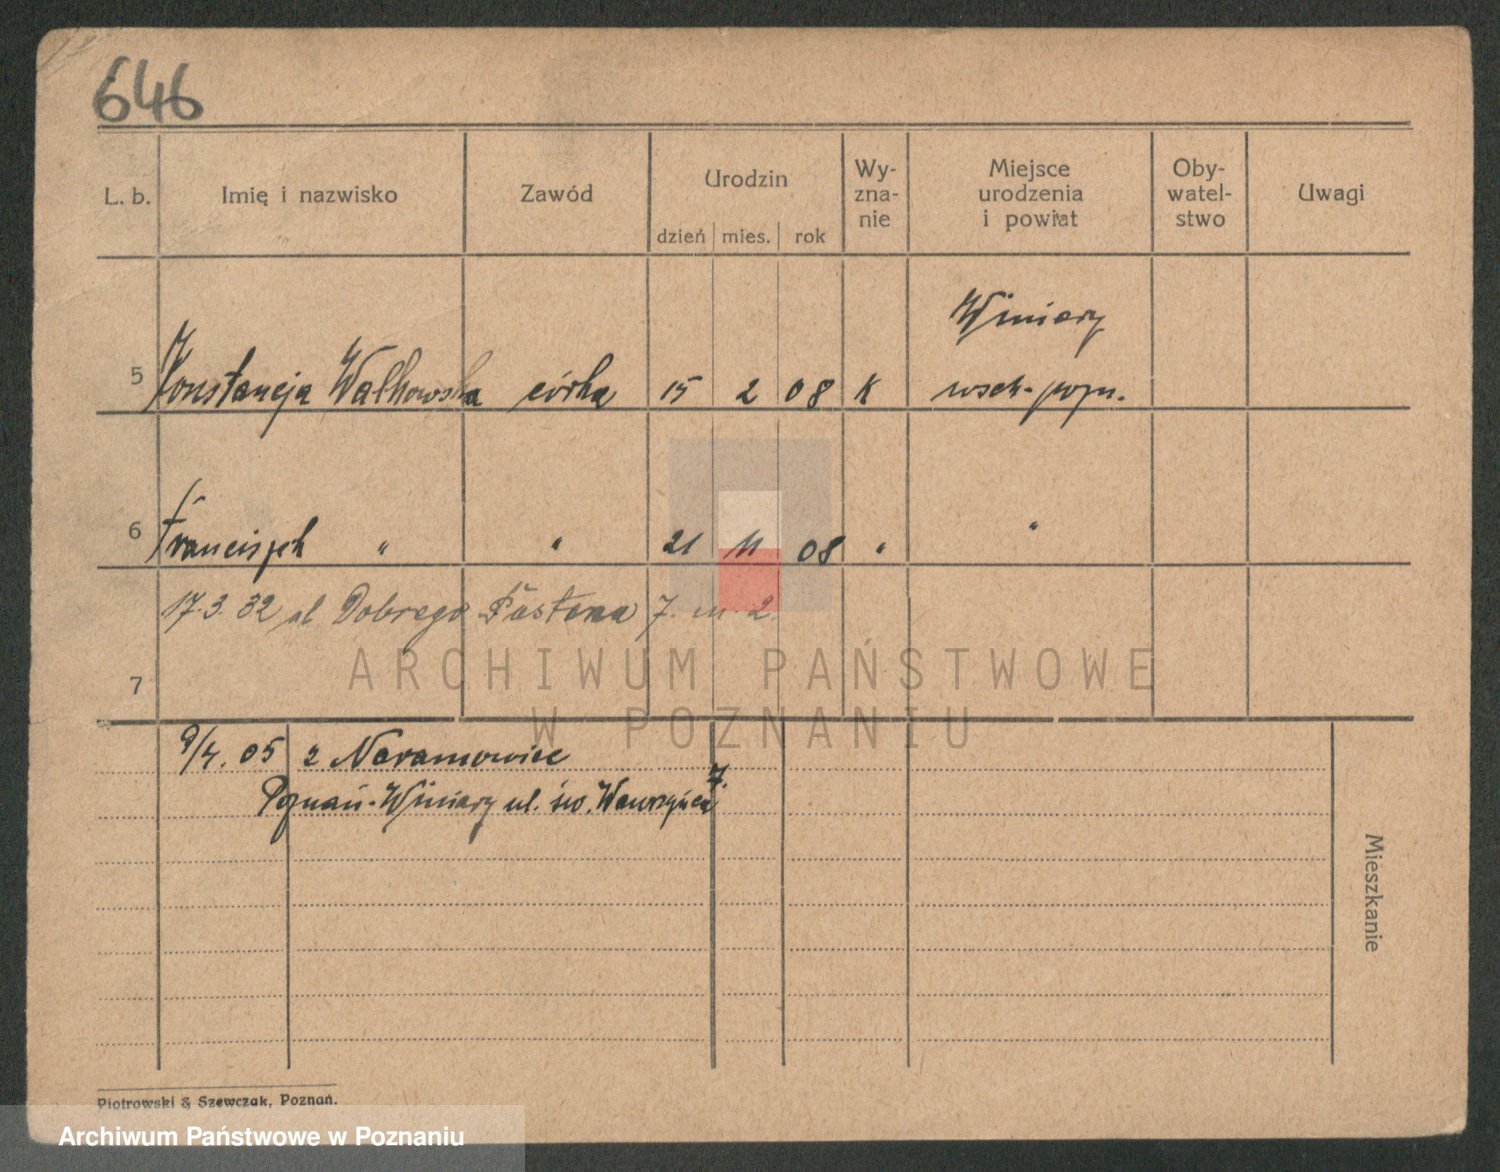 646
L. b. Imię i nazwisko Zawód Urodzin Wy-zna-nie Miejsce urodzenia i powiat Oby-watel-stwo Uwagi
dzień mies. rok
Winiary
5 Konstancja Walkowska córka 15 2 08 K wsch-pozn.
6 Franciszek " " 21 11 08 " "
17.3.32 ul Dobrego Pasterza 7. m 2.
7
ARCHIWUM PAŃSTWOWE
W POZNANIU
9/4. 05 z Naramowice
Poznań-Winiary ul. św. Wawrzyńca 7.
Mieszkanie
Piotrowski & Szewczak, Poznań.
Archiwum Państwowe w Poznaniu